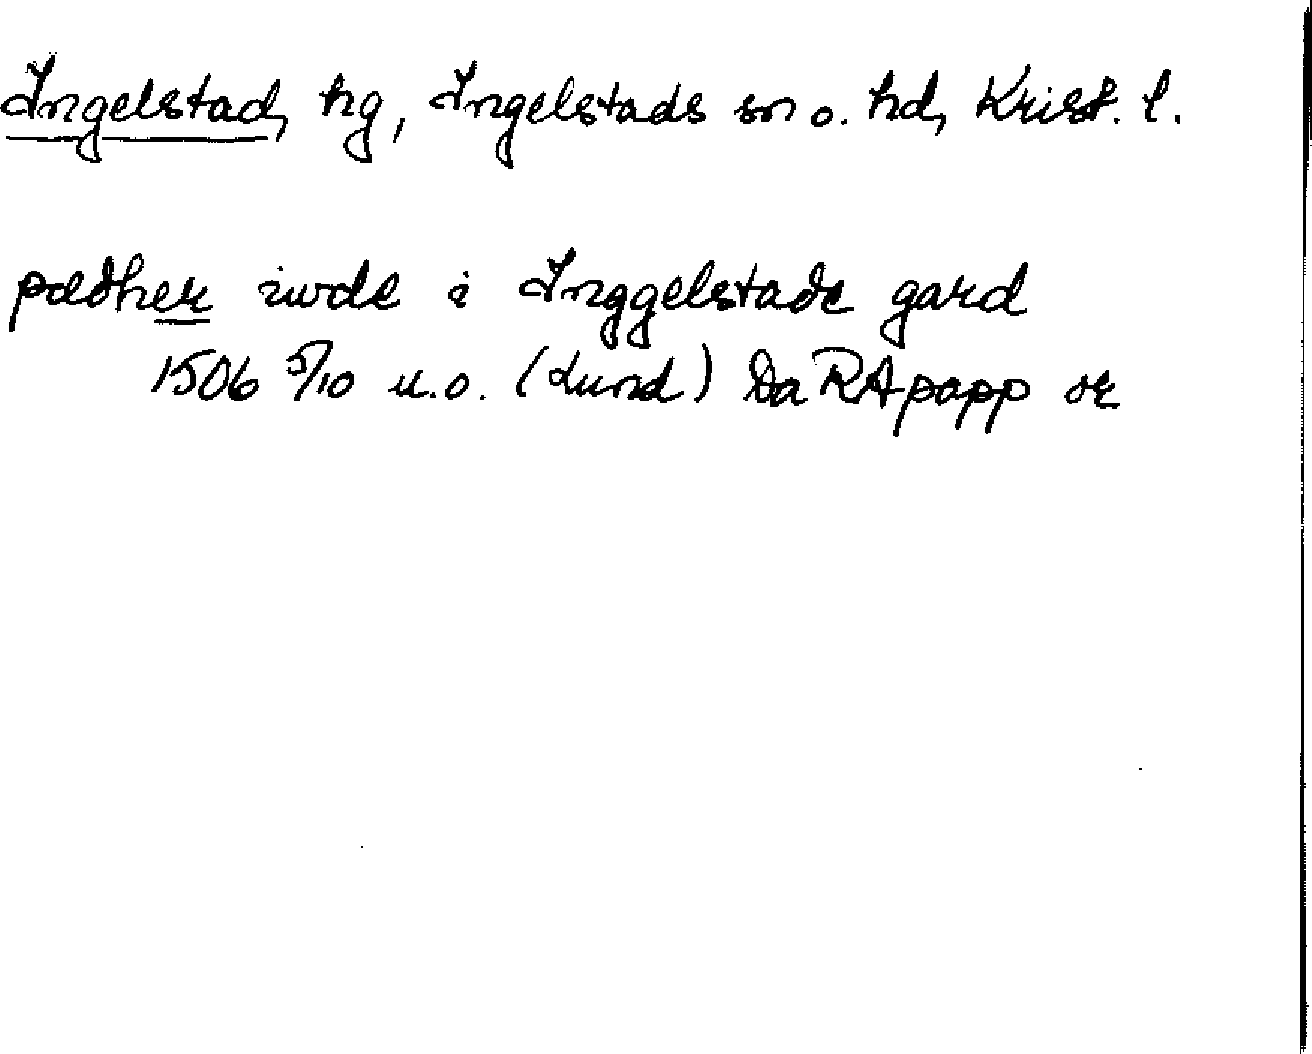 Ingelstad, hg, Ingelstads sn o. hd, Krist. l.
pædher iwde i Inggelstade gard
1506 5/10 u.o. (Lund) Da RA papp or